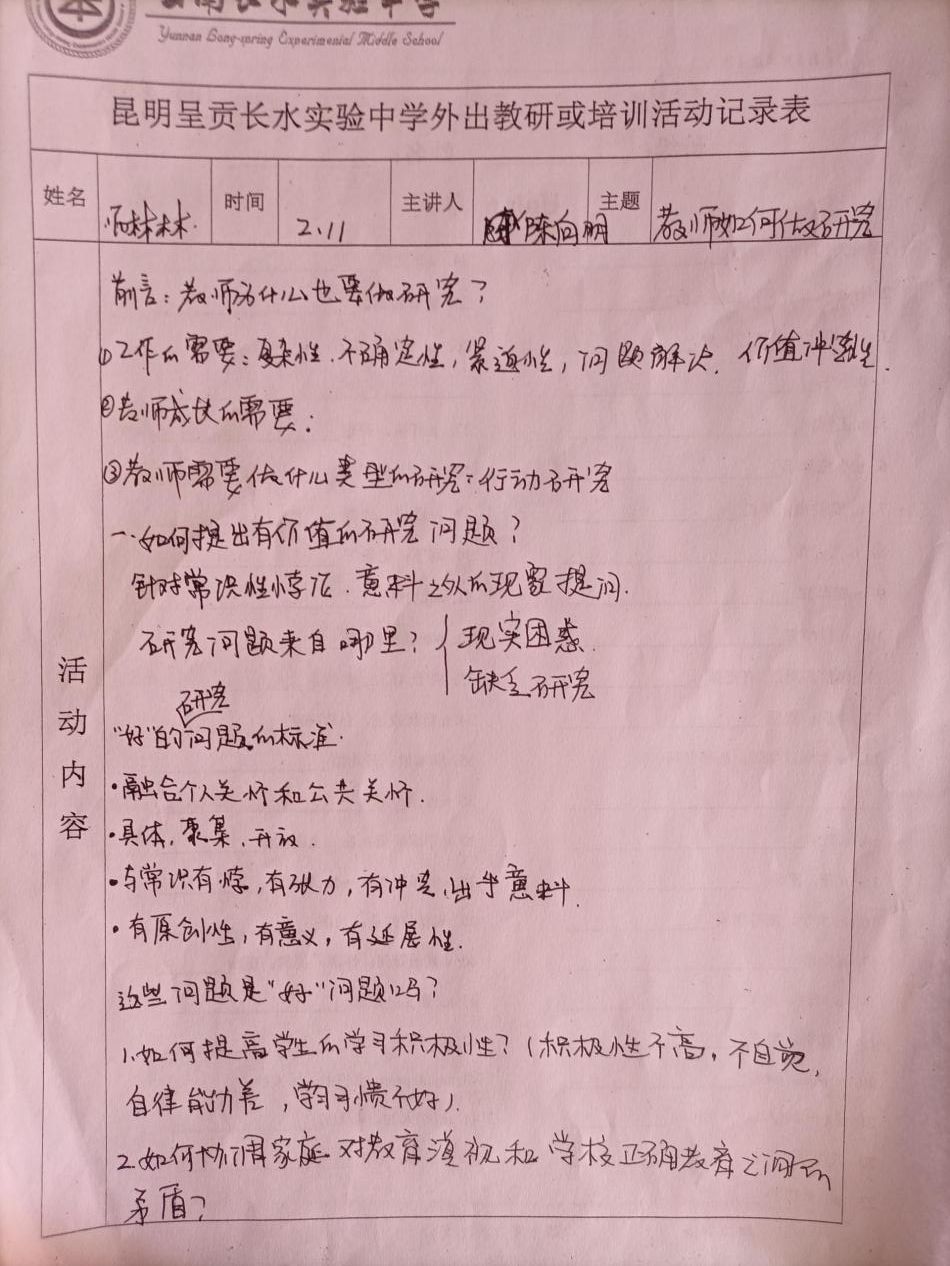 Yunnan Long-spring Experimental Middle School
昆明呈贡长水实验中学外出教研或培训活动记录表
姓名 师林林 时间 2.11 主讲人 陈向明 主题 教师如何做研究
活动内容
前言:教师为什么也要做研究?
①工作的需要:复杂性、不确定性,紧迫性,问题解决、价值冲突性.
②教师成长的需要:
③教师需要做什么类型的研究:行动研究
一.如何提出有价值的研究问题?
针对常识性悖论、意料之外的现象提问.
研究问题来自哪里? 现实困惑.
缺乏研究
研究
"好"的问题的标准.
·融合个人关怀和公共关怀.
·具体,聚集,开放.
·与常识有悖,有张力,有冲突,出乎意料.
·有原创性,有意义,有延展性.
这些问题是"好"问题吗?
1.如何提高学生的学习积极性?(积极性不高,不自觉,
自律能力差,学习习惯不好).
2.如何协调家庭对教育漠视和学校正确教育之间的
矛盾?